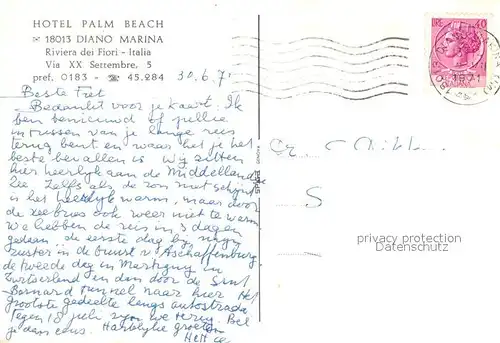 HOTEL PALM BEACH
✉ 18013 DIANO MARINA
Riviera dei Fiori - Italia
Via XX Settembre, 5
pref. 0183 - ☎ 45.284
30.6.71
Beste Fret
Bedankt voor je kaart. Ik
ben benieuwd of jullie
intussen van je lange reis
terug bent en waar het je het
beste bevallen is. Wij zitten
hier heerlijk aan de Middelland
Zee Zelfs als de zon niet schijnt
is het heerlijk warm, maar door
de zeebries ook weer niet te warm
we hebben de reis in 3 dagen
gedaan. de eerste dag bij mijn
zuster in de buurt v Aschaffenburg
de tweede dag in Martigny in
Zwitserland en dan door de Sint
Bernard tunnel naar hier Het
grootste gedeelte langs autostrada
Tegen 18 juli zijn we terug. Bel
je dan eens. Hartelijke groeten
LIRE 40
privacy protection
Datenschutz
S